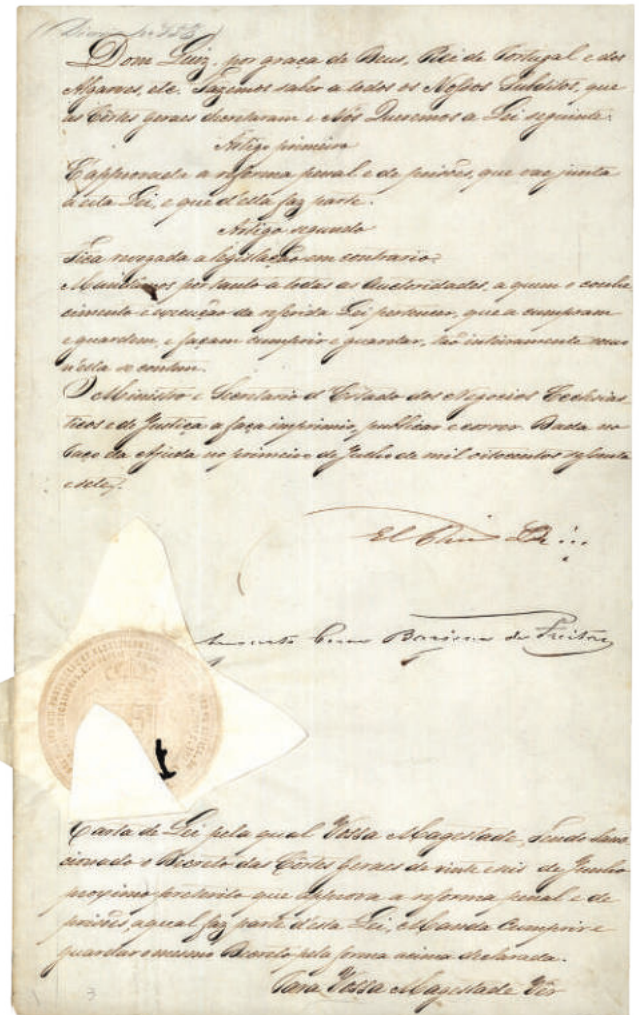 Dom Luiz, por graça de Deus, Rei de Portugal e dos
Algarves, etc. Fazemos saber a todos os Nossos Subditos, que
as Côrtes Geraes decretaram e Nós Queremos a Lei seguinte:
Artigo primeiro
É approvada a reforma penal e de prisões, que vae junta
a esta Lei, e que d'ella faz parte.
Artigo segundo
Fica revogada a legislação em contrario.
Mandâmos por tanto a todas as Auctoridades, a quem o conhe-
cimento e execução da referida Lei pertencer, que a cumpram
e guardem, e façam cumprir e guardar, tão inteiramente como
n'ella se contem.
O Ministro e Secretario d'Estado dos Negocios Ecclesias-
ticos e de Justiça a faça imprimir, publicar e correr. Dada no
Paço da Ajuda no primeiro de Julho de mil oitocentos sessenta
e sete.
El Rei
Augusto Cesar Barjona de Freitas
Carta de Lei pela qual Vossa Magestade, Tendo Sanc-
cionado o Decreto das Côrtes Geraes de vinte e seis de Junho
proximo preterito que approva a reforma penal e de
prisões, a qual faz parte d'esta Lei, Manda cumprir e
guardar o mesmo Decreto pela forma acima declarada.
Para Vossa Magestade Ver
3